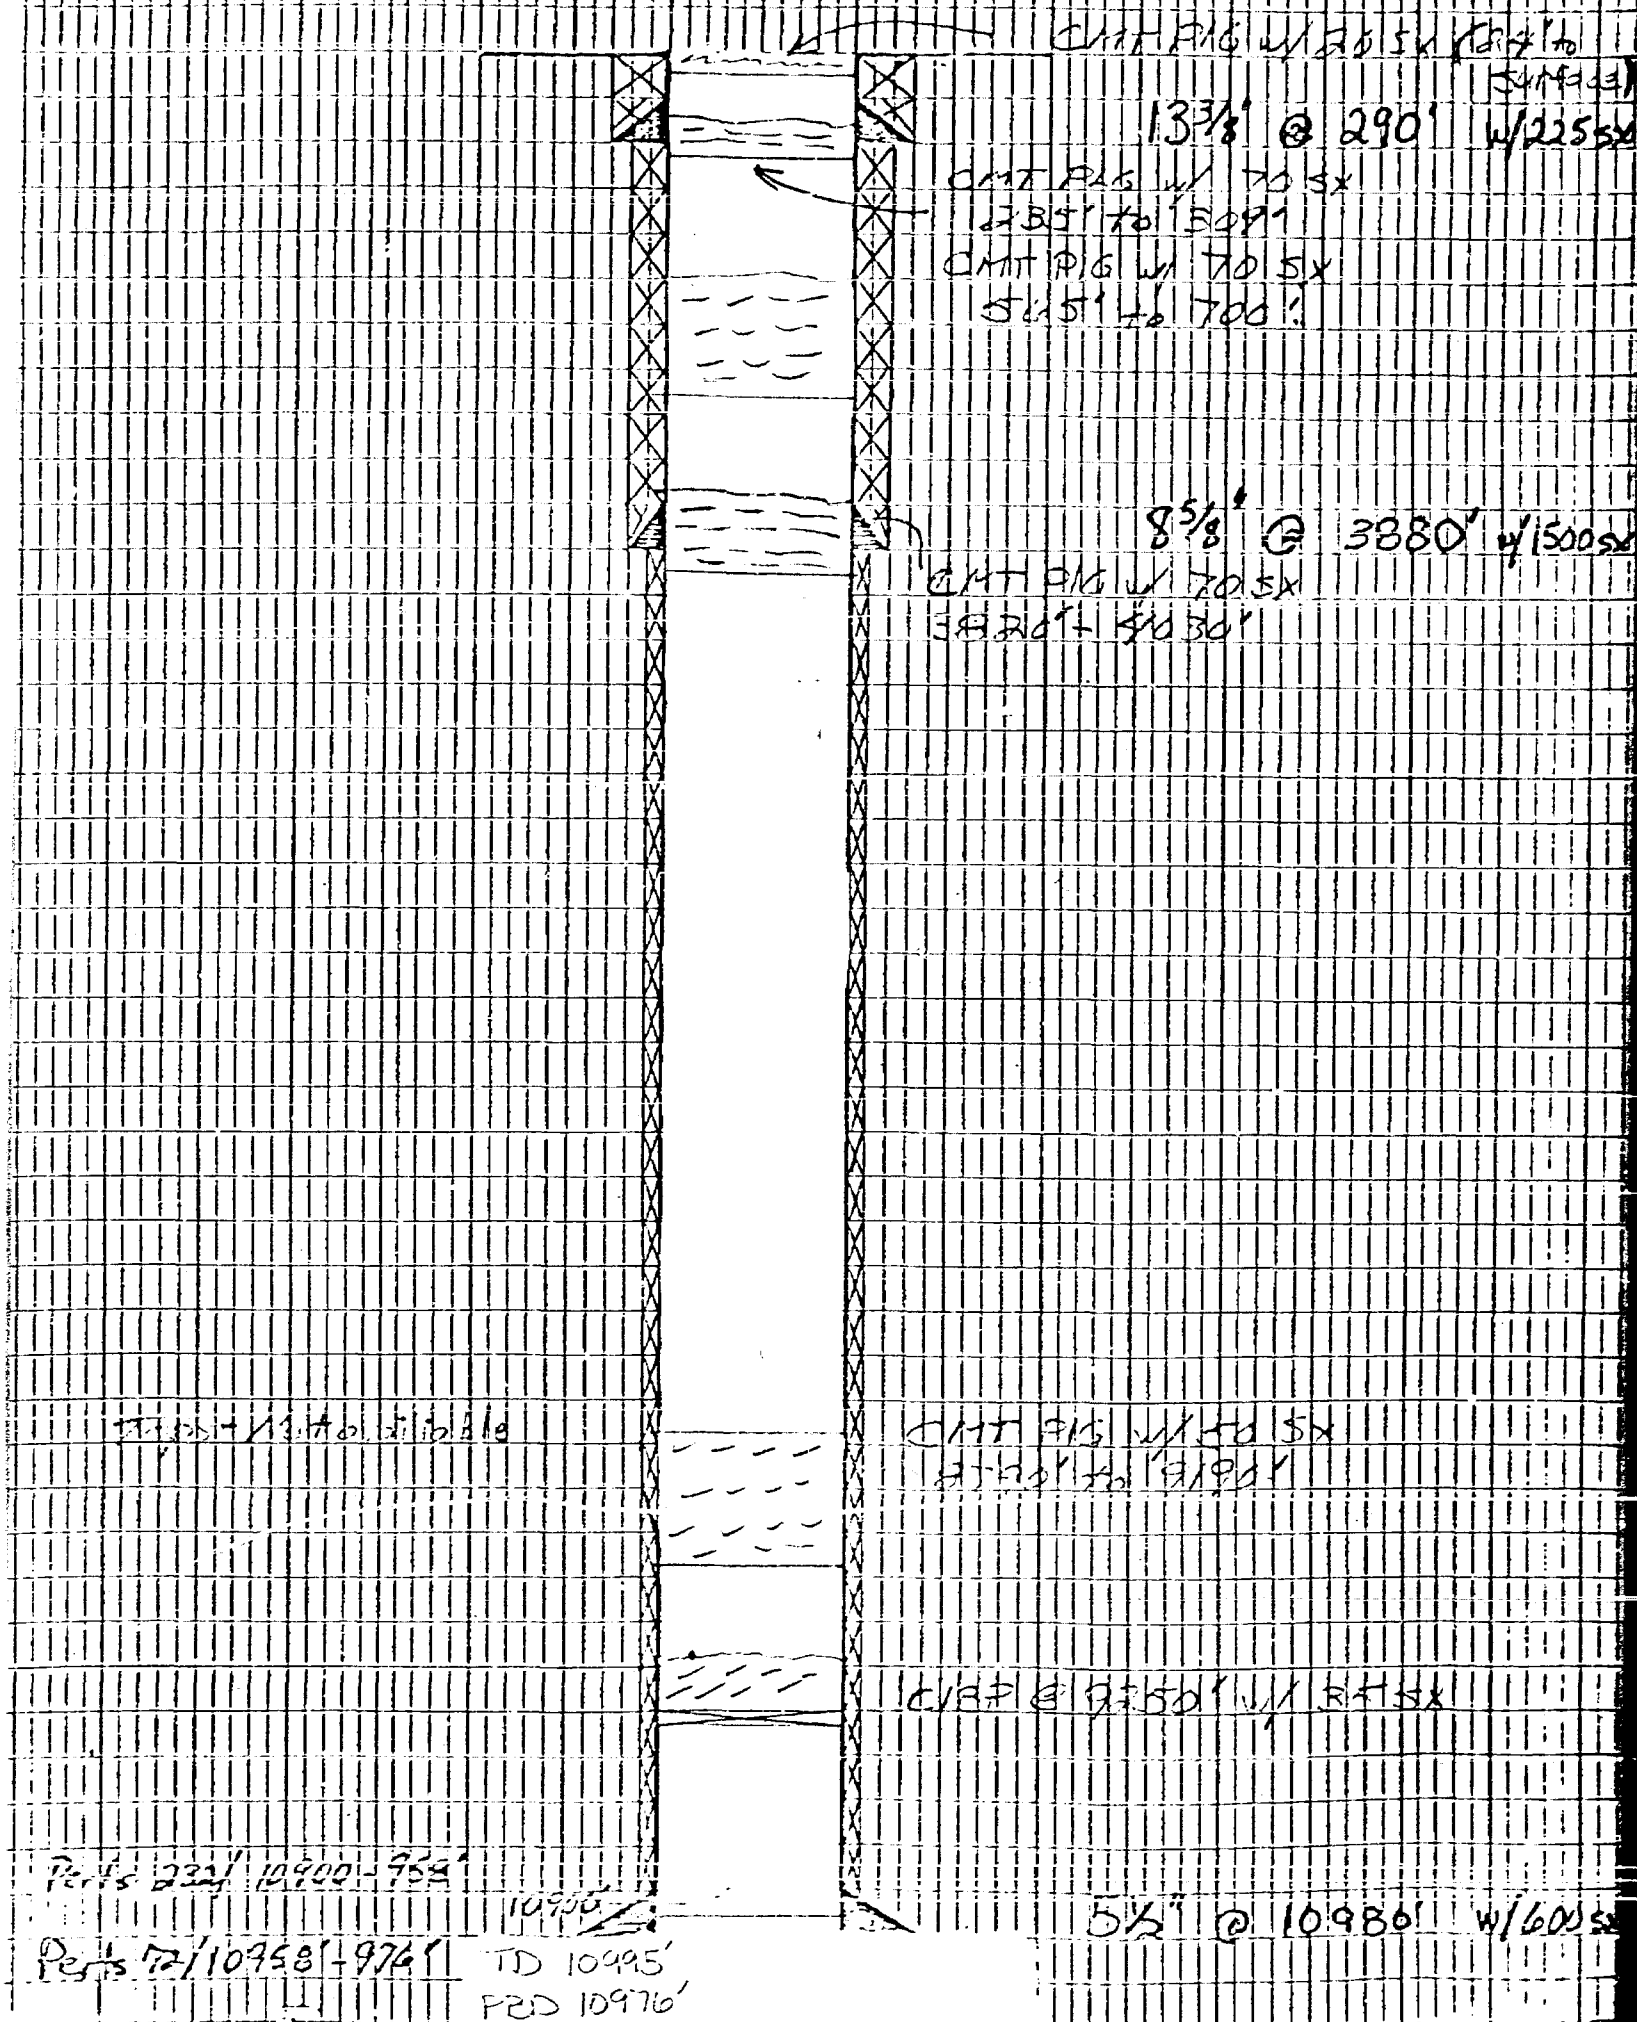 CMT Plg w/ 20 sx (24' to
surface)
13 3/8" @ 290' w/225 sx
CMT PLG w/ 70 SX
235' to 309'
CMT PlG w/ 70 SX
565' to 700'
8 5/8" @ 3880' w/1500 sx
CMT PlG w/ 70 SX
3820' - 4030'
Tops - Not
CMT PlG w/ 50 SX
to 9190'
CIBP @ w/ 35 SX
Perfs 10900 - 958'
5 1/2" @ 10980' w/600 sx
Perfs 72/10958'-976'
TD 10995'
PBD 10976'